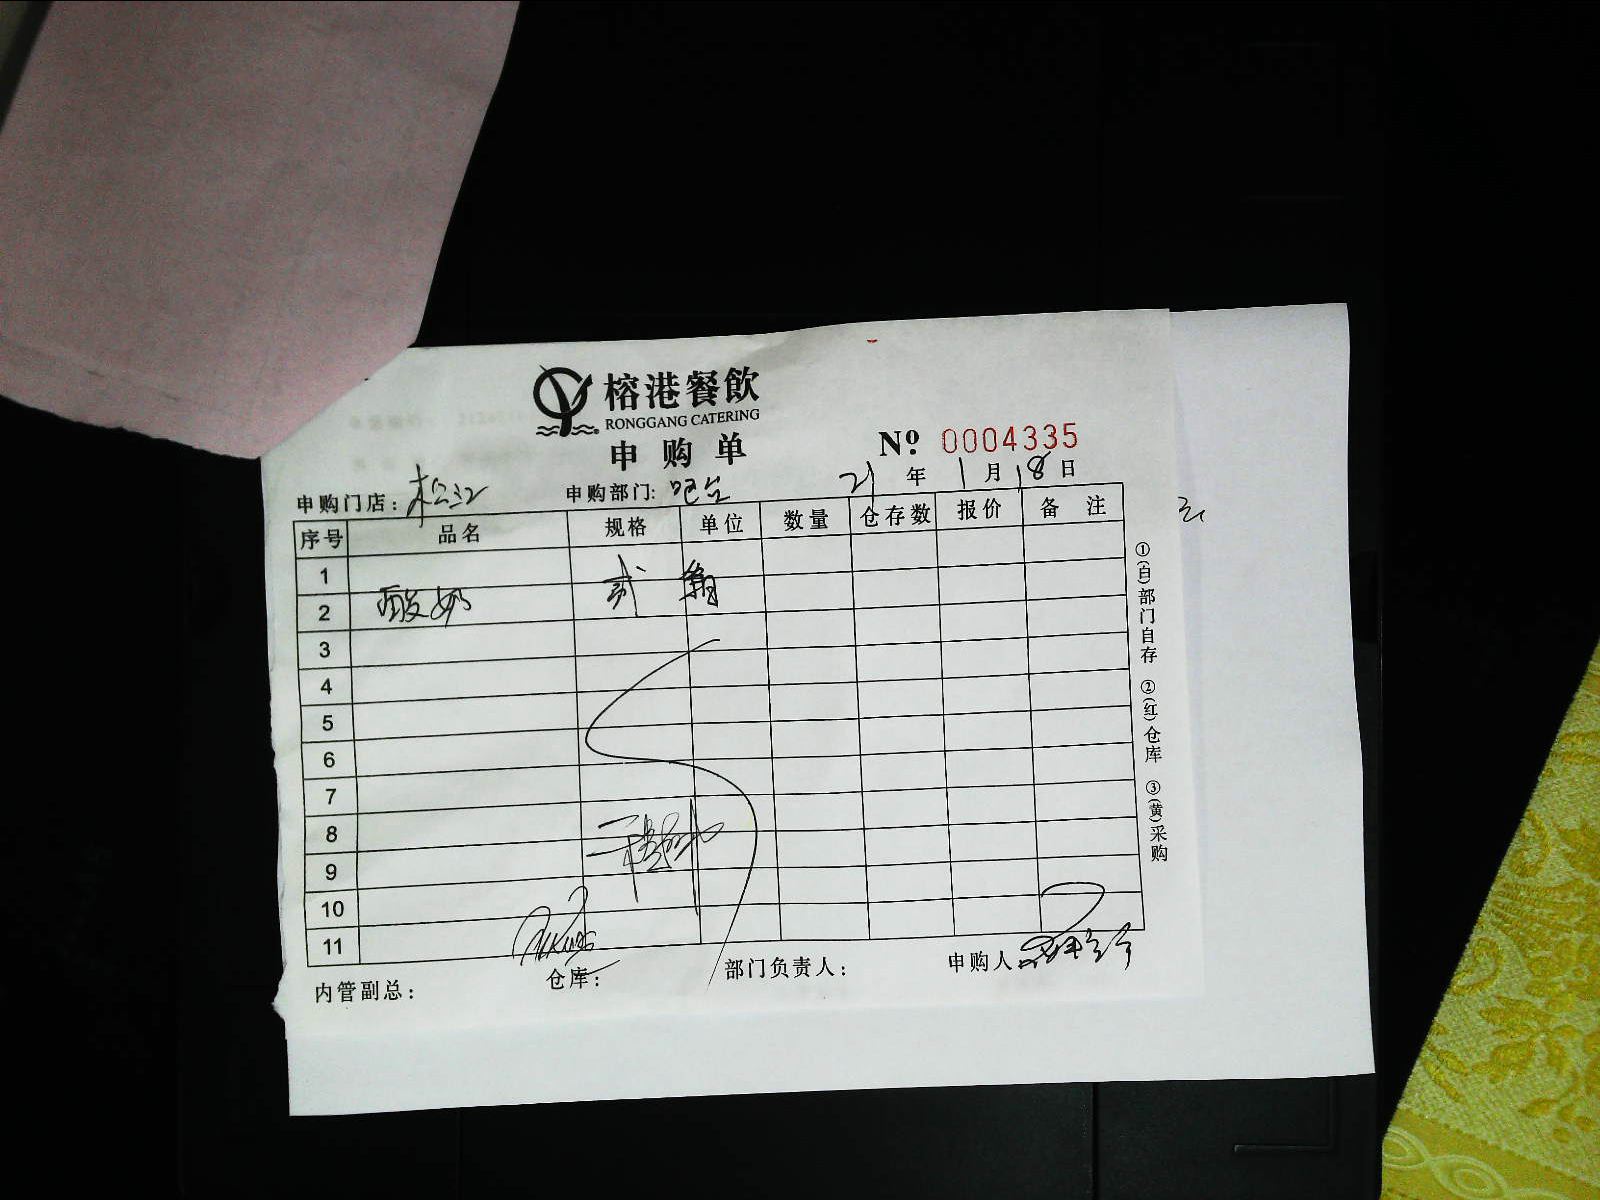 榕港餐飲
RONGGANG CATERING
申购单
Nº 0004335
申购门店: 松江 申购部门: 吧台 21年1月18日
序号 品名 规格 单位 数量 仓存数 报价 备注
1
2 酸奶 贰 箱
3
4
5
6
7
8
9
10
11
内管副总: 仓库: 部门负责人: 申购人:
①(白)部门自存 ②(红)仓库 ③(黄)采购